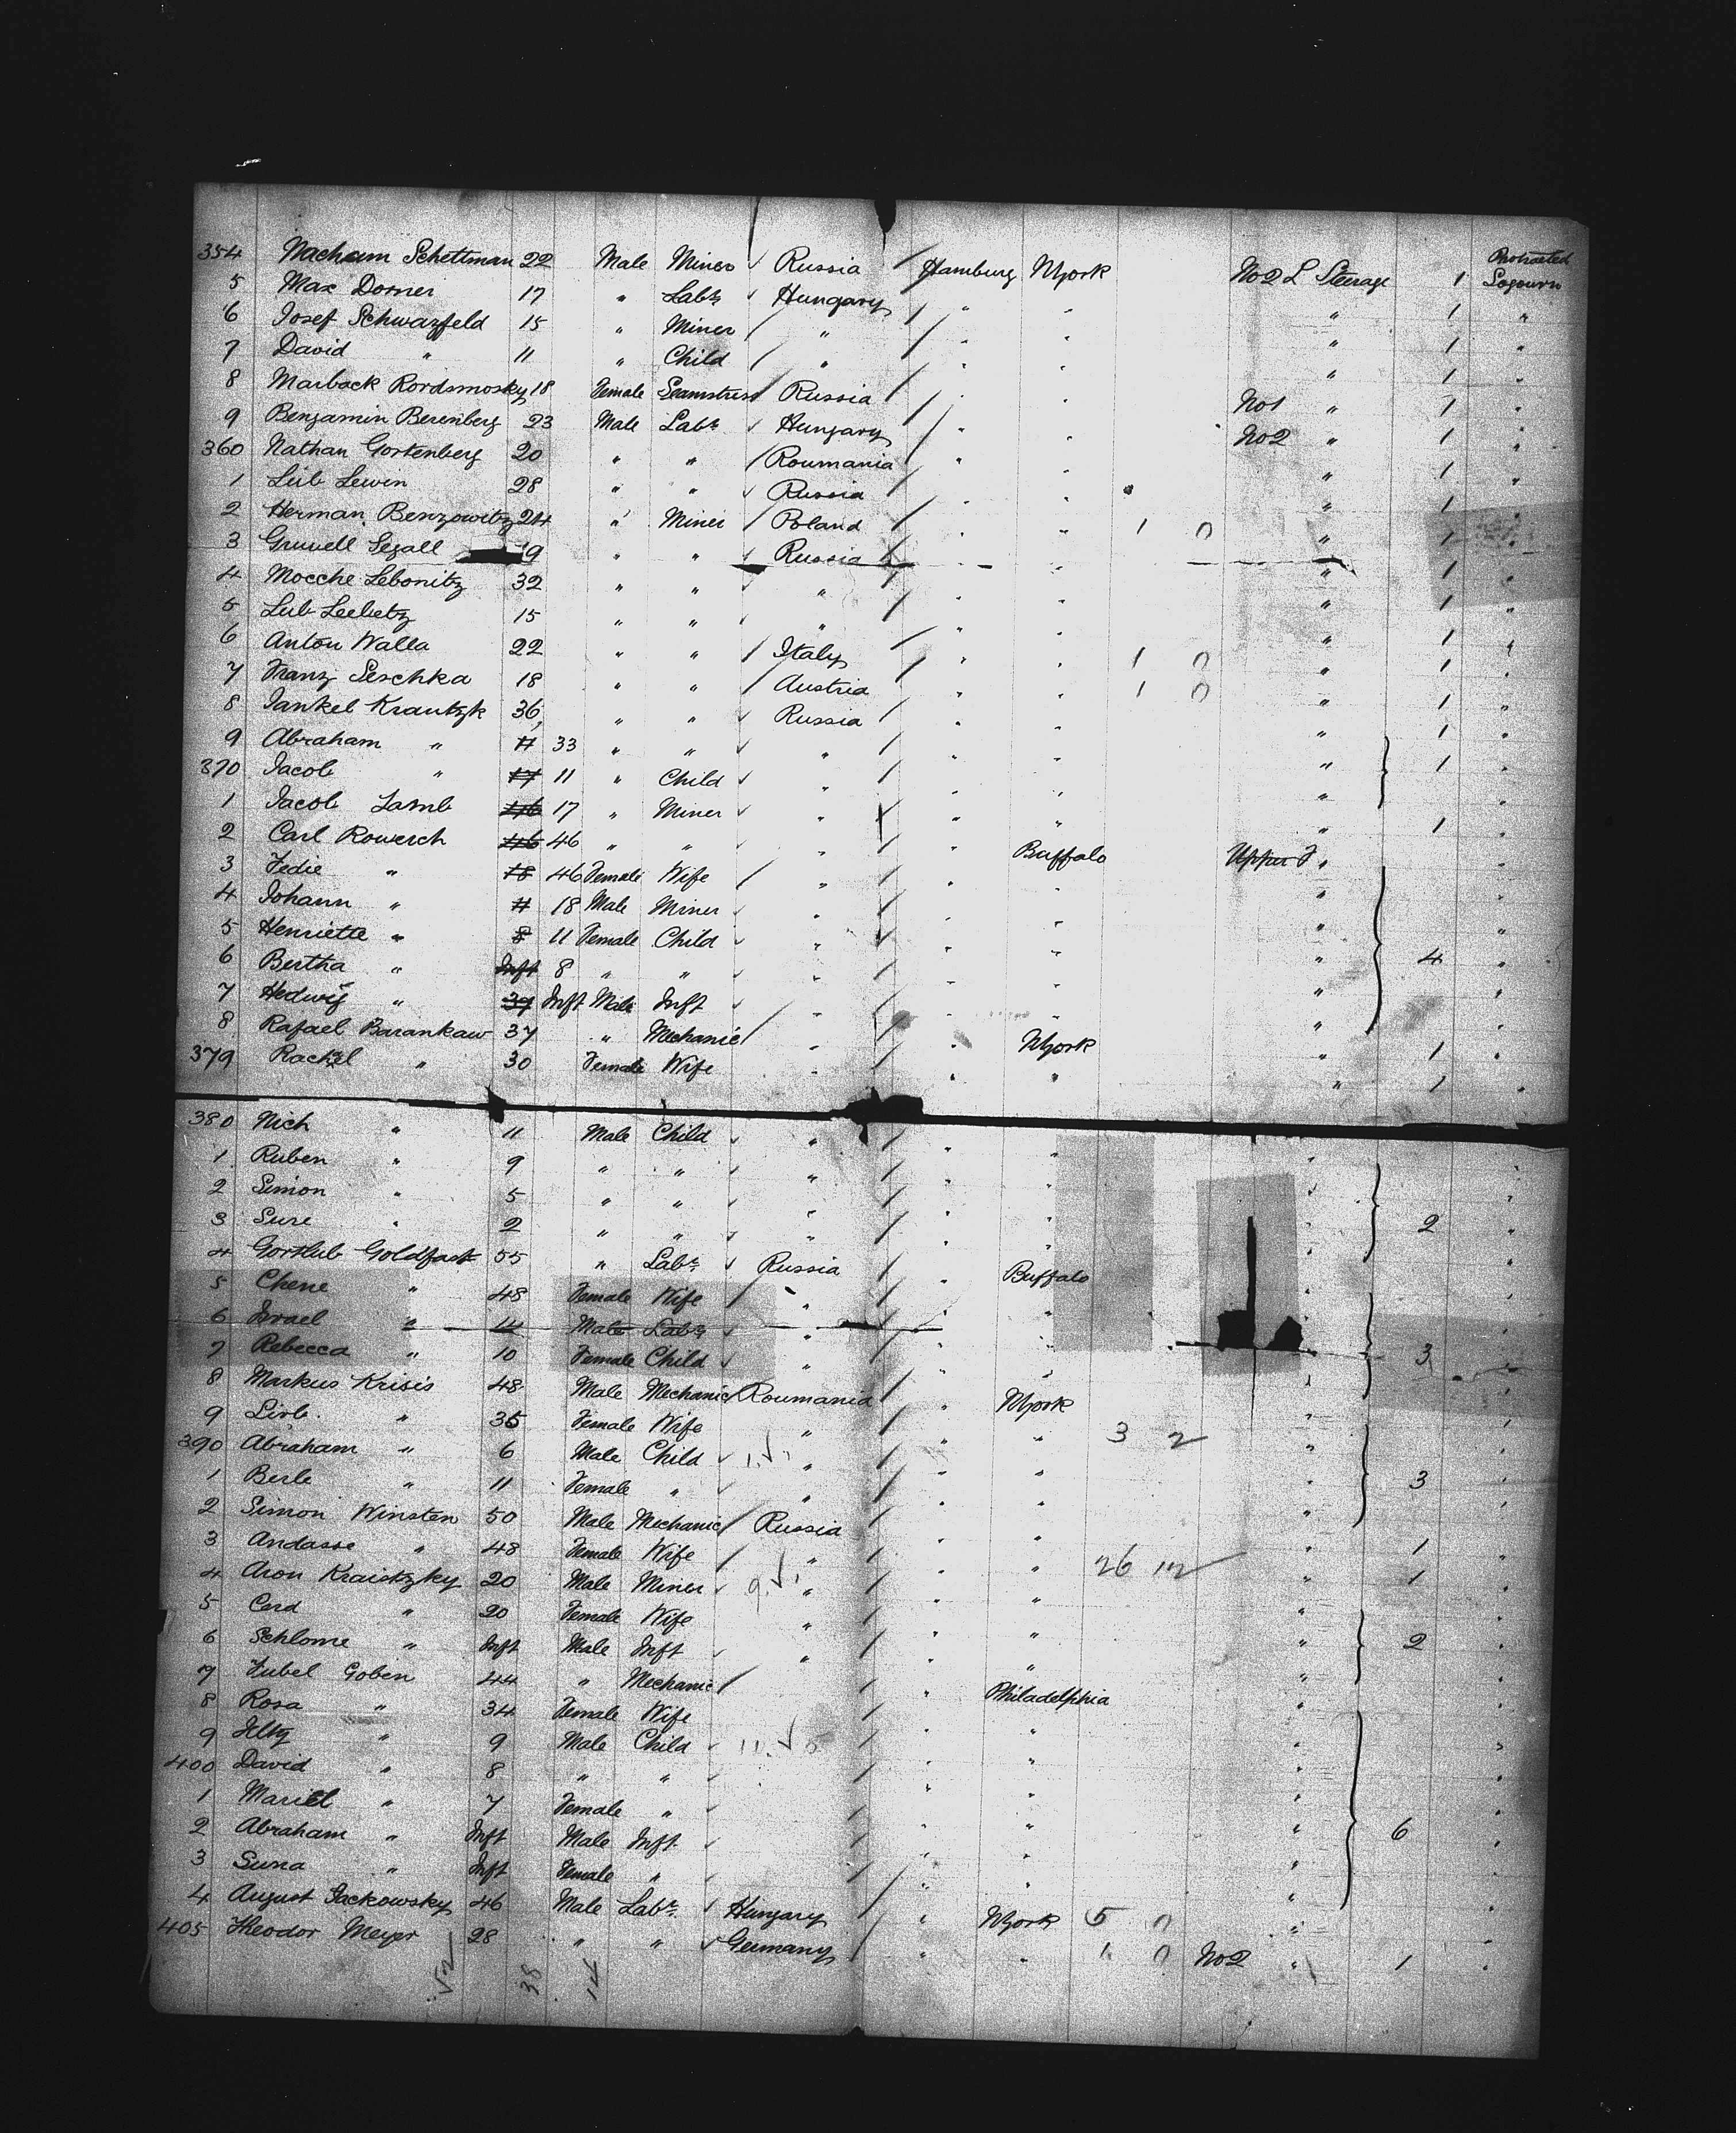 354 Nachum Schettman 22 Male Miner Russia Hamburg NYork No 2 L Steerage 1 Protracted Sojourn
5 Max Dorner 17 " Labr Hungary " " " 1 "
6 Josef Schwarzfeld 15 " Miner " " " " 1 "
7 David " 11 " Child " " " " 1 "
8 Marback Rordsmosky 18 Female Seamstress Russia " " No 1 " 1 "
9 Benjamin Berenberg 23 Male Labr Hungary " " No 2 " 1 "
360 Nathan Gortenberg 20 " " Roumania " " " 1 "
1 Leib Lewin 28 " " Russia " " " 1 "
2 Herman Benzowitz 24 " Miner Poland " " 1 0 " 1 "
3 Gruvell Segall 19 " " Russia " " " 1 "
4 Mocche Lebonitz 32 " " " " " " 1 "
5 Leib Leebetz 15 " " " " " " 1 "
6 Anton Walla 22 " " Italy " " 1 0 " 1 "
7 Franz Seschka 18 " " Austria " " 1 0 " 1 "
8 Jankel Krautzk 36 " " Russia " " " 1 "
9 Abraham " 11 33 " " " " " "
370 Jacob " 17 11 " Child " " " " 1 "
1 Jacob Lamb 46 17 " Miner " " " " 1 "
2 Carl Rowerch 46 46 " " " " Buffalo Upper F "
3 Fedie " 18 46 Female Wife " " " "
4 Johann " 11 18 Male Miner " " " " "
5 Henriette " 8 11 Female Child " " " " 4 "
6 Bertha " Inft 8 " " " " " " "
7 Hedwig " 37 Inft Male Inft " " " "
8 Rafael Barankaw 37 " Mechanic " " NYork " 1 "
379 Rachel " 30 Female Wife " " " " 1 "
380 Nich " 11 Male Child " " " "
1 Ruben " 9 " " " " " "
2 Simon " 5 " " " " " "
3 Sure " 2 " " " " " 2 "
4 Gortlub Goldfast 55 " Labr Russia " Buffalo "
5 Chene " 48 Female Wife " " " "
6 Israel " 14 Male Labr " " " "
7 Rebecca " 10 Female Child " " " 3 "
8 Markus Krisis 48 Male Mechanic Roumania " NYork "
9 Lirb " 35 Female Wife " " " 3 2 "
390 Abraham " 6 Male Child " " " "
1 Berle " 11 Female " " " " " 3 "
2 Simon Winsten 50 Male Mechanic Russia " " "
3 Andasse " 48 Female Wife " " " 26 12 " 1 "
4 Aron Kraistzky 20 Male Miner " " " " 1 "
5 Cerd " 20 Female Wife " " " "
6 Schlome " Inft Male Inft " " " " 2 "
7 Fubel Gobin 44 " Mechanic " Philadelphia "
8 Rosa " 34 Female Wife " " "
9 " 9 Male Child " " " "
400 David " 8 " " " " "
1 Mariel " 7 Female " " " "
2 Abraham " Inft Male Inft " " " 6 "
3 Suna " Inft Female " " " "
4 August Jackowsky 46 Male Labr Hungary " NYork 5 0 " "
405 Theodor Meyer 28 " " Germany " " 1 0 No 2 " 1 "
52 38 14